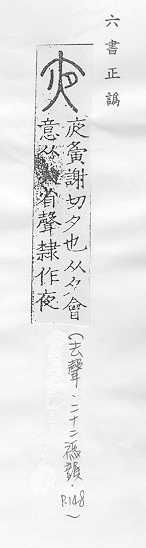 六書正譌
夜
夤謝切夕也从夕會
意从省聲隸作夜
(去聲.二十二禡韻.
P.148)